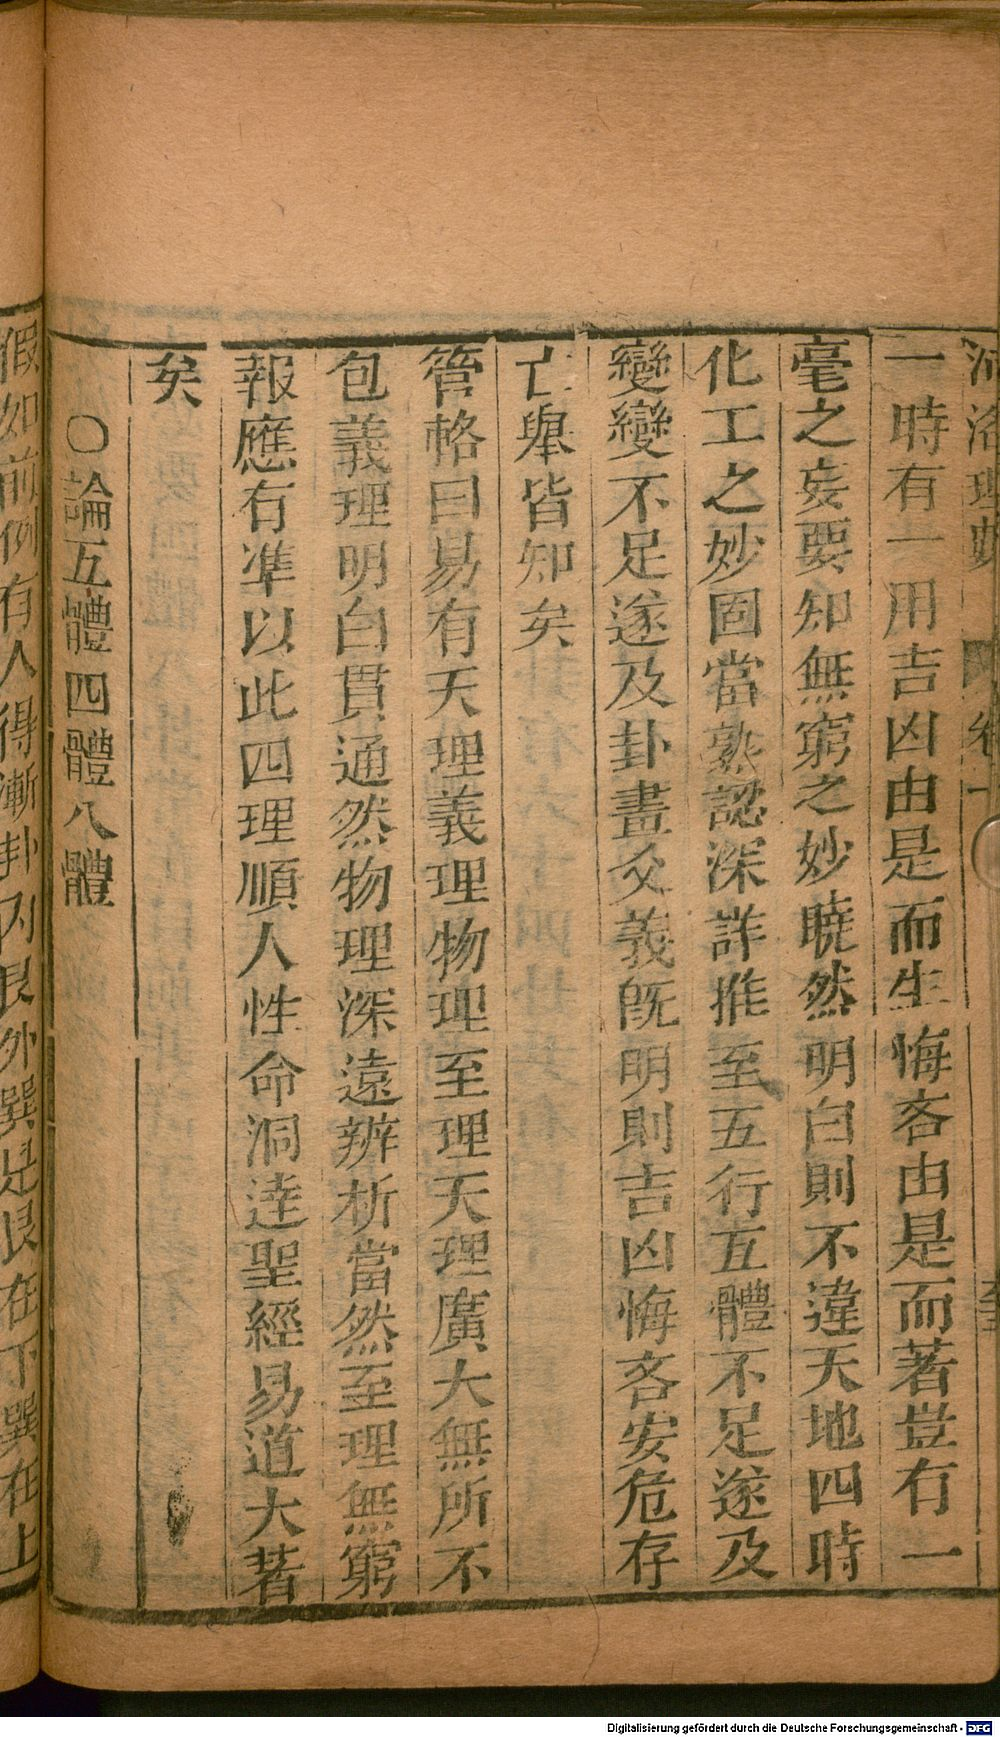 河洛理數
卷一
一時有一用吉凶由是而生悔吝由是而著豈有一
毫之妄要知無窮之妙曉然明白則不違天地四時
化工之妙固當熟認深詳推至五行互體不足遂及
變變不足遂及卦畫爻義旣明則吉凶悔吝安危存
亡舉皆知矣
管輅曰易有天理義理物理至理天理廣大無所不
包義理明白貫通然物理深遠辨析當然至理無窮
報應有準以此四理順人性命洞達聖經易道大著
矣
〇論互體四體八體
假如前例有人得漸卦內艮外巽是艮在下巽在上
Digitalisierung gefördert durch die Deutsche Forschungsgemeinschaft - DFG